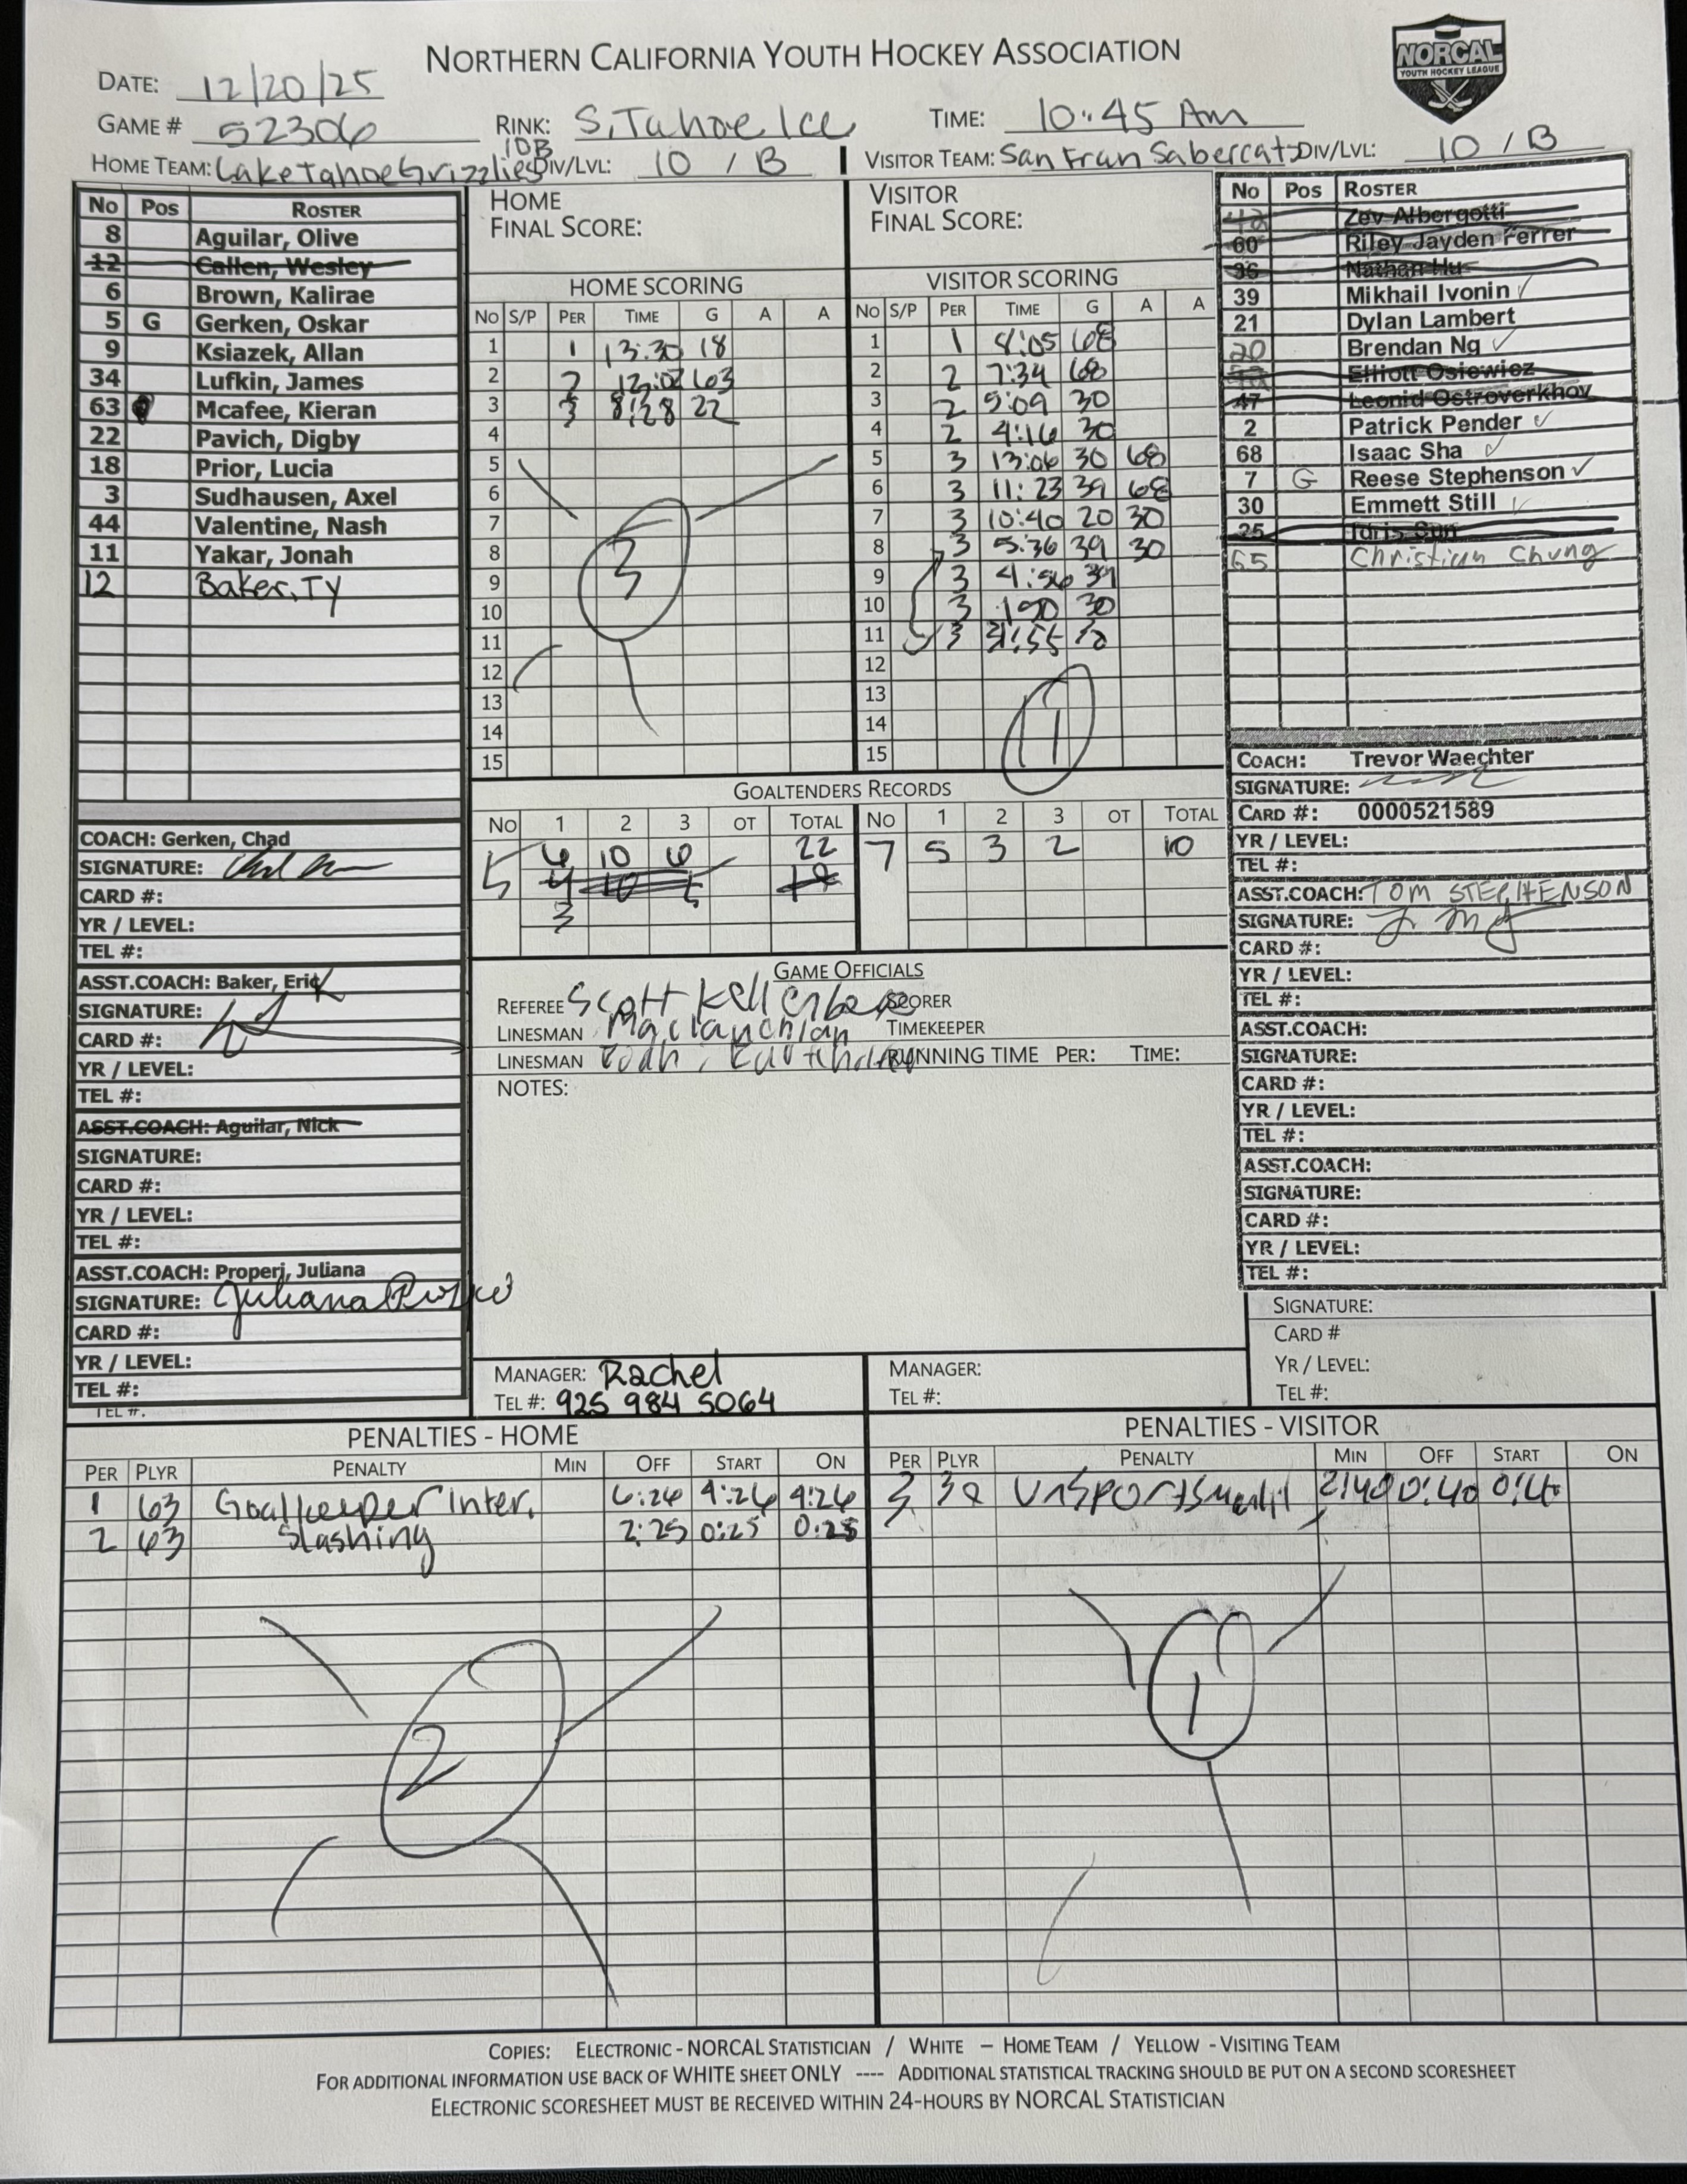 NORTHERN CALIFORNIA YOUTH HOCKEY ASSOCIATION
NORCAL
YOUTH HOCKEY LEAGUE
DATE: 12/20/25
GAME # 52306 RINK: S, Tahoe Ice TIME: 10:45 Am
10B
HOME TEAM: Lake Tahoe Grizzlies DIV/LVL: 10 / B VISITOR TEAM: San Fran Sabercats DIV/LVL: 10 / B
No Pos ROSTER
8 Aguilar, Olive
12 Callen, Wesley
6 Brown, Kalirae
5 G Gerken, Oskar
9 Ksiazek, Allan
34 Lufkin, James
63 Mcafee, Kieran
22 Pavich, Digby
18 Prior, Lucia
3 Sudhausen, Axel
44 Valentine, Nash
11 Yakar, Jonah
12 Baker, Ty
COACH: Gerken, Chad
SIGNATURE:
CARD #:
YR / LEVEL:
TEL #:
ASST.COACH: Baker, Eric
SIGNATURE:
CARD #:
YR / LEVEL:
TEL #:
ASST.COACH: Aguilar, Nick
SIGNATURE:
CARD #:
YR / LEVEL:
TEL #:
ASST.COACH: Properi, Juliana
SIGNATURE: Juliana
CARD #:
YR / LEVEL:
TEL #:
TEL #:
HOME
FINAL SCORE:
HOME SCORING
NO S/P PER TIME G A A
1 1 13:30 18
2 2 63
3 3 8:28 22
4
5
6
7
8
9
10
11
12
13
14
15
3
VISITOR
FINAL SCORE:
VISITOR SCORING
NO S/P PER TIME G A A
1 1 8:05 68
2 2 7:34 68
3 2 5:09 30
4 2 4:16 30
5 3 13:06 30 68
6 3 11:23 39 68
7 3 10:40 20 30
8 3 5:36 39 30
9 3 4:56 39
10 3 30
11 3
12
13
14
15
11
GOALTENDERS RECORDS
NO 1 2 3 OT TOTAL NO 1 2 3 OT TOTAL
5 6 10 6 22 7 5 3 2 10
4 10 5
3
GAME OFFICIALS
REFEREE Scott SCORER
LINESMAN Maclauchlan TIMEKEEPER
LINESMAN RUNNING TIME PER: TIME:
NOTES:
MANAGER: Rachel
TEL #: 925 984 5064
MANAGER:
TEL #:
No Pos ROSTER
42 Zev Albergotti
60 Riley Jayden Ferrer
36 Nathan Hu
39 Mikhail Ivonin ✓
21 Dylan Lambert
20 Brendan Ng ✓
Elliott Osiewicz
47 Leonid Ostroverkhov
2 Patrick Pender ✓
68 Isaac Sha ✓
7 G Reese Stephenson ✓
30 Emmett Still ✓
25 Idris Sun
65 Christian Chung
COACH: Trevor Waechter
SIGNATURE:
CARD #: 0000521589
YR / LEVEL:
TEL #:
ASST.COACH: TOM STEPHENSON
SIGNATURE:
CARD #:
YR / LEVEL:
TEL #:
ASST.COACH:
SIGNATURE:
CARD #:
YR / LEVEL:
TEL #:
ASST.COACH:
SIGNATURE:
CARD #:
YR / LEVEL:
TEL #:
SIGNATURE:
CARD #
YR / LEVEL:
TEL #:
PENALTIES - HOME
PER PLYR PENALTY MIN OFF START ON
1 63 Goalkeeper Inter. 6:26 4:26 4:26
2 63 Slashing 2:25 0:25 0:25
2
PENALTIES - VISITOR
PER PLYR PENALTY MIN OFF START ON
3 30 2:40 0:40
1
COPIES: ELECTRONIC - NORCAL STATISTICIAN / WHITE – HOME TEAM / YELLOW - VISITING TEAM
FOR ADDITIONAL INFORMATION USE BACK OF WHITE SHEET ONLY ---- ADDITIONAL STATISTICAL TRACKING SHOULD BE PUT ON A SECOND SCORESHEET
ELECTRONIC SCORESHEET MUST BE RECEIVED WITHIN 24-HOURS BY NORCAL STATISTICIAN